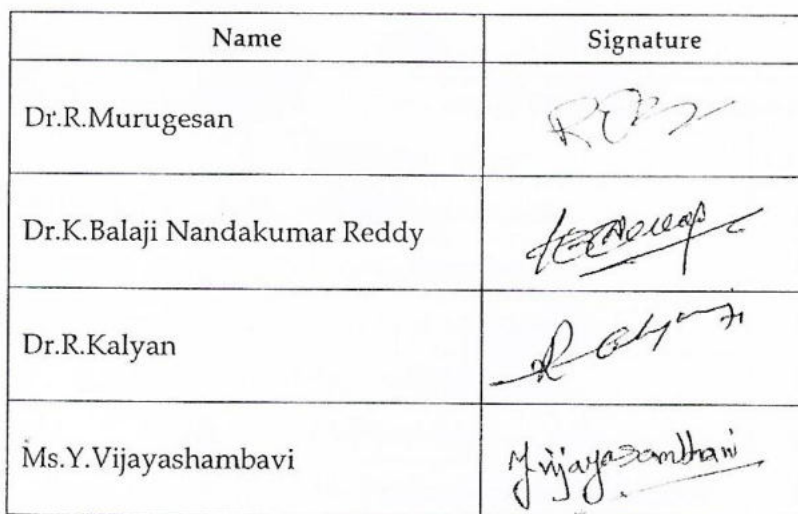 Name Signature
Dr.R.Murugesan
Dr.K.Balaji Nandakumar Reddy
Dr.R.Kalyan
Ms.Y.Vijayashambavi Y vijayasambhavi